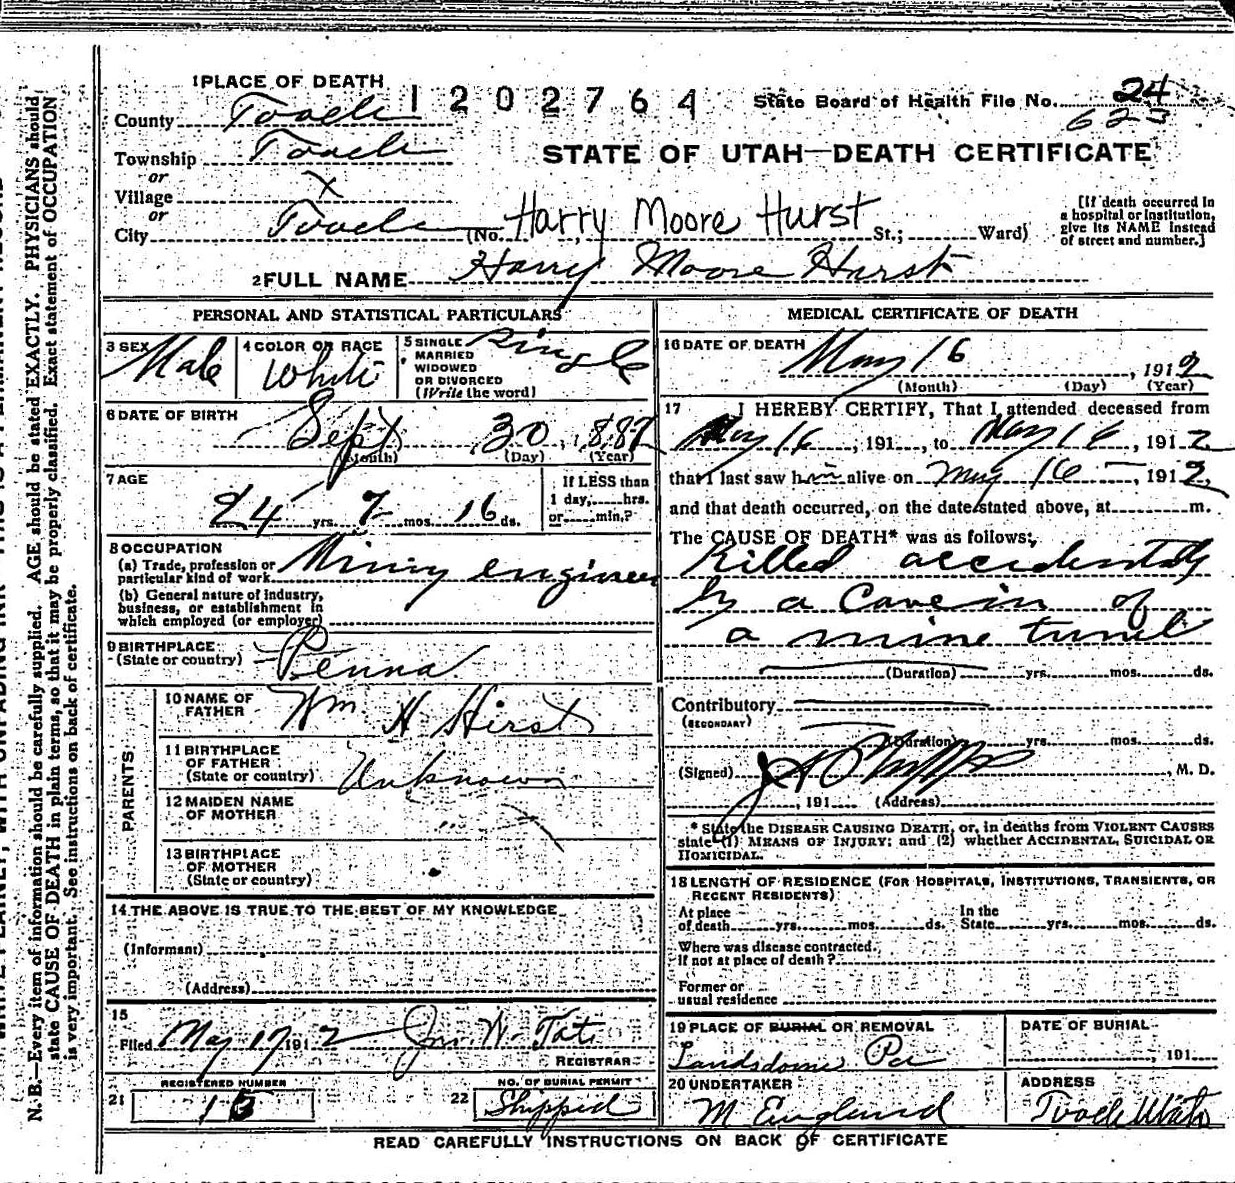 1 PLACE OF DEATH
1202764
State Board of Health File No. 24
County Tooele
622
Township Tooele
STATE OF UTAH—DEATH CERTIFICATE
or
Village X
or
City Tooele (No. Harry Moore Hurst St.; Ward)
[If death occurred in a hospital or institution, give its NAME instead of street and number.]
2 FULL NAME Harry Moore Hurst
PERSONAL AND STATISTICAL PARTICULARS
3 SEX Male
4 COLOR OR RACE White
5 SINGLE MARRIED WIDOWED OR DIVORCED (Write the word) Single
6 DATE OF BIRTH Sept 30, 1887
(Month) (Day) (Year)
7 AGE 24 yrs. 7 mos. 16 ds.
If LESS than 1 day, hrs. or min.?
8 OCCUPATION
(a) Trade, profession or particular kind of work Mining engineer
(b) General nature of industry, business, or establishment in which employed (or employer)
9 BIRTHPLACE (State or country) Penna
PARENTS
10 NAME OF FATHER Wm. H Hirst
11 BIRTHPLACE OF FATHER (State or country) Unknown
12 MAIDEN NAME OF MOTHER
13 BIRTHPLACE OF MOTHER (State or country)
14 THE ABOVE IS TRUE TO THE BEST OF MY KNOWLEDGE
(Informant)
(Address)
15
Filed May 17 1912 Jno. W. Tate
REGISTRAR
21 REGISTERED NUMBER 15
22 NO. OF BURIAL PERMIT Shipped
MEDICAL CERTIFICATE OF DEATH
16 DATE OF DEATH May 16, 1912
(Month) (Day) (Year)
17 I HEREBY CERTIFY, That I attended deceased from
May 16, 191 , to May 16, 1912
that I last saw him alive on May 16, 1912
and that death occurred, on the date stated above, at m.
The CAUSE OF DEATH* was as follows:
Killed accidentaly
by a Cave in of
a mine tunel
(Duration) yrs. mos. ds.
Contributory
(SECONDARY)
(Duration) yrs. mos. ds.
(Signed) , M. D.
, 191 (Address)
* State the DISEASE CAUSING DEATH, or, in deaths from VIOLENT CAUSES
state (1) MEANS OF INJURY; and (2) whether ACCIDENTAL, SUICIDAL OR
HOMICIDAL.
18 LENGTH OF RESIDENCE (FOR HOSPITALS, INSTITUTIONS, TRANSIENTS, OR
RECENT RESIDENTS)
At place of death yrs. mos. ds. In the State yrs. mos. ds.
Where was disease contracted, if not at place of death?
Former or usual residence
19 PLACE OF BURIAL OR REMOVAL
Landsdowne Pa
DATE OF BURIAL
, 191
20 UNDERTAKER
M England
ADDRESS
Tooele Utah
READ CAREFULLY INSTRUCTIONS ON BACK OF CERTIFICATE
N. B.—Every item of information should be carefully supplied. AGE should be stated EXACTLY. PHYSICIANS should
state CAUSE OF DEATH in plain terms, so that it may be properly classified. Exact statement of OCCUPATION
is very important. See instructions on back of certificate.